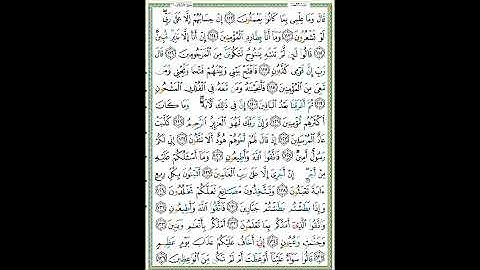 قَالَ وَمَا عِلْمِي بِمَا كَانُوا يَعْمَلُونَ ﴿١١٢﴾ إِنْ حِسَابُهُمْ إِلَّا عَلَىٰ رَبِّي
لَوْ تَشْعُرُونَ ﴿١١٣﴾ وَمَا أَنَا بِطَارِدِ الْمُؤْمِنِينَ ﴿١١٤﴾ إِنْ أَنَا إِلَّا نَذِيرٌ مُّبِينٌ
﴿١١٥﴾ قَالُوا لَئِن لَّمْ تَنتَهِ يَٰنُوحُ لَتَكُونَنَّ مِنَ الْمَرْجُومِينَ ﴿١١٦﴾ قَالَ
رَبِّ إِنَّ قَوْمِي كَذَّبُونِ ﴿١١٧﴾ فَافْتَحْ بَيْنِي وَبَيْنَهُمْ فَتْحًا وَنَجِّنِي وَمَن
مَّعِيَ مِنَ الْمُؤْمِنِينَ ﴿١١٨﴾ فَأَنجَيْنَٰهُ وَمَن مَّعَهُ فِي الْفُلْكِ الْمَشْحُونِ
﴿١١٩﴾ ثُمَّ أَغْرَقْنَا بَعْدُ الْبَاقِينَ ﴿١٢٠﴾ إِنَّ فِي ذَٰلِكَ لَآيَةً وَمَا كَانَ
أَكْثَرُهُم مُّؤْمِنِينَ ﴿١٢١﴾ وَإِنَّ رَبَّكَ لَهُوَ الْعَزِيزُ الرَّحِيمُ ﴿١٢٢﴾ كَذَّبَتْ
عَادٌ الْمُرْسَلِينَ ﴿١٢٣﴾ إِذْ قَالَ لَهُمْ أَخُوهُمْ هُودٌ أَلَا تَتَّقُونَ ﴿١٢٤﴾ إِنِّي لَكُمْ
رَسُولٌ أَمِينٌ ﴿١٢٥﴾ فَاتَّقُوا اللَّهَ وَأَطِيعُونِ ﴿١٢٦﴾ وَمَا أَسْـَٔلُكُمْ عَلَيْهِ
مِنْ أَجْرٍ إِنْ أَجْرِيَ إِلَّا عَلَىٰ رَبِّ الْعَٰلَمِينَ ﴿١٢٧﴾ أَتَبْنُونَ بِكُلِّ رِيعٍ
ءَايَةً تَعْبَثُونَ ﴿١٢٨﴾ وَتَتَّخِذُونَ مَصَانِعَ لَعَلَّكُمْ تَخْلُدُونَ ﴿١٢٩﴾
وَإِذَا بَطَشْتُم بَطَشْتُمْ جَبَّارِينَ ﴿١٣٠﴾ فَاتَّقُوا اللَّهَ وَأَطِيعُونِ ﴿١٣١﴾
وَاتَّقُوا الَّذِي أَمَدَّكُم بِمَا تَعْلَمُونَ ﴿١٣٢﴾ أَمَدَّكُم بِأَنْعَٰمٍ وَبَنِينَ ﴿١٣٣﴾
وَجَنَّٰتٍ وَعُيُونٍ ﴿١٣٤﴾ إِنِّي أَخَافُ عَلَيْكُمْ عَذَابَ يَوْمٍ عَظِيمٍ
﴿١٣٥﴾ قَالُوا سَوَاءٌ عَلَيْنَا أَوَعَظْتَ أَمْ لَمْ تَكُن مِّنَ الْوَٰعِظِينَ ﴿١٣٦﴾